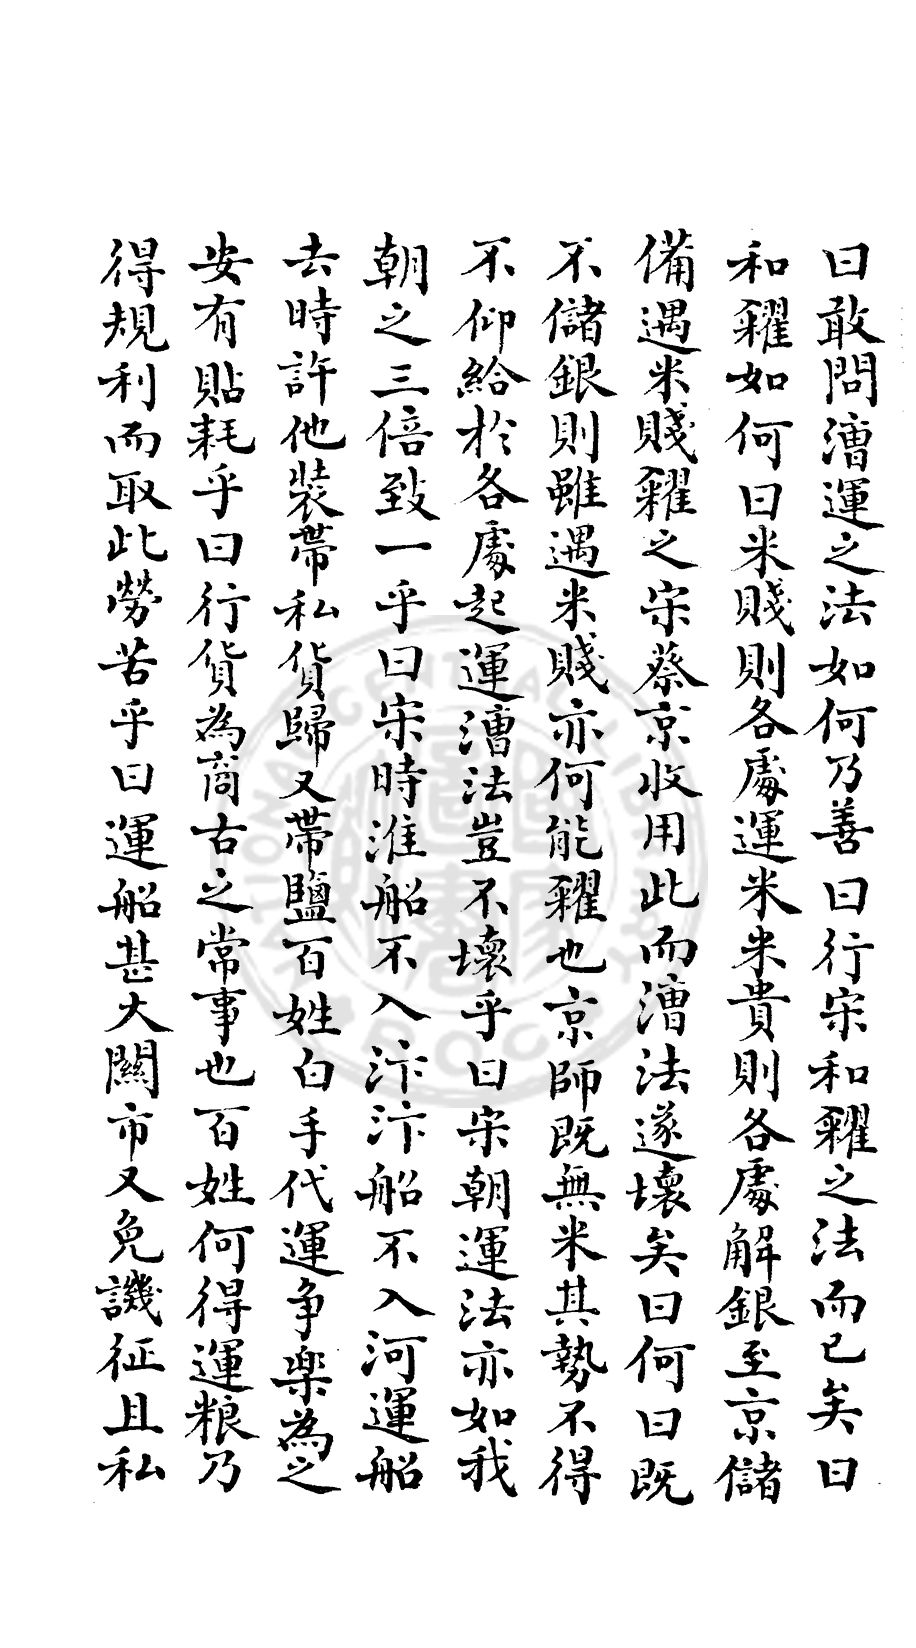 曰敢問漕運之法如何乃善曰行宋和糴之法而已矣曰
和糴如何曰米賤則各處運米米貴則各處解銀至京儲
備遇米賤糴之宋蔡京收用此而漕法遂壞矣曰何曰既
不儲銀則雖遇米賤亦何能糴也京師既無米其勢不得
不仰給於各處起運漕法豈不壞乎曰宋朝運法亦如我
朝之三倍致一乎曰宋時淮船不入汴汴船不入河運船
去時許他裝帶私貨歸又帶鹽百姓白手代運爭樂為之
安有貼耗乎曰行貨為商古之常事也百姓何得運粮乃
得規利而取此勞苦乎曰運船甚大關市又免譏征且私